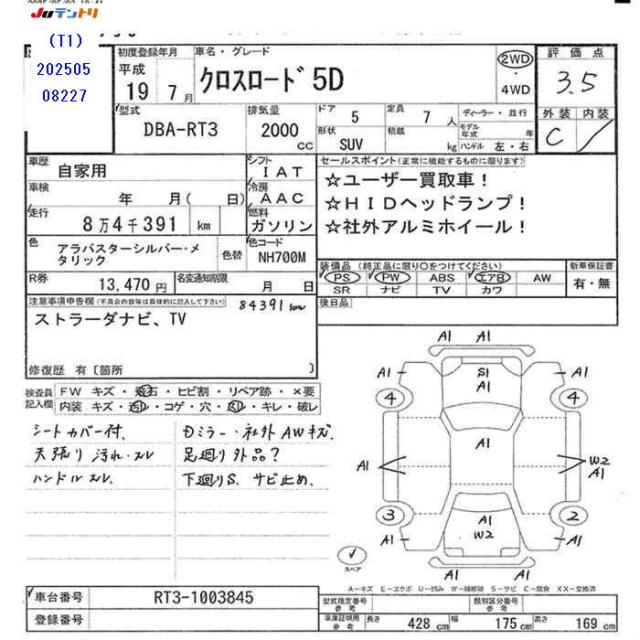 JUテントリ
(T1)
202505
08227
初度登録年月
平成
19 7月
車名・グレード
クロスロード 5D
2WD
・
4WD
評価点
3.5
外装 内装
C
型式
DBA-RT3
排気量
2000 cc
ドア 5
形状 SUV
定員 7 人
積載 kg
ディーラー・並行
モデル年式 年
ハンドル 左・右
車歴
自家用
シフト
IAT
車検
年 月( 日)
冷房
AAC
走行
8万4千391 km
燃料
ガソリン
色
アラバスターシルバー・メタリック
色替
色コード
NH700M
R券
13,470 円
名変通知期限
月 日
セールスポイント(正常に機能するものに限ります)
☆ユーザー買取車!
☆HIDヘッドランプ!
☆社外アルミホイール!
装備品(純正品に限り○をつけてください)
PS PW ABS エアB AW
SR ナビ TV カワ
新車保証書
有・無
後日品
注意事項申告欄(不具合内容等は具体的に記入して下さい)
84391km
ストラーダナビ、TV
修復歴 有〔箇所 〕
検査員記入欄
FW キズ・飛石・ヒビ割・リペア跡・×要
内装 キズ・汚レ・コゲ・穴・スレ・キレ・破レ
シートカバー付、
天張り汚れ・スレ
ハンドルスレ、
Dミラー・社外AWキズ、
足廻り外品?
下廻りS、サビ止め、
A1
A1
S1
A1
A1
A1
4
4
A1
A1
W2
A1
3
2
A1
W2
A1
A1
A1
スペア
A-キズ E-エクボ U-凹み W-補修跡 S-サビ C-腐食 XX-交換済
車台番号
RT3-1003845
登録番号
型式指定番号
参考
類別区分番号
参考
車庫証明用
参考
長さ 428 cm
幅 175 cm
高さ 169 cm